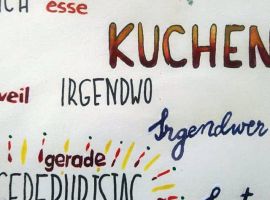 ICH esse
KUCHEN
weil IRGENDWO
Irgendwer
gerade
GEBURTSTAG